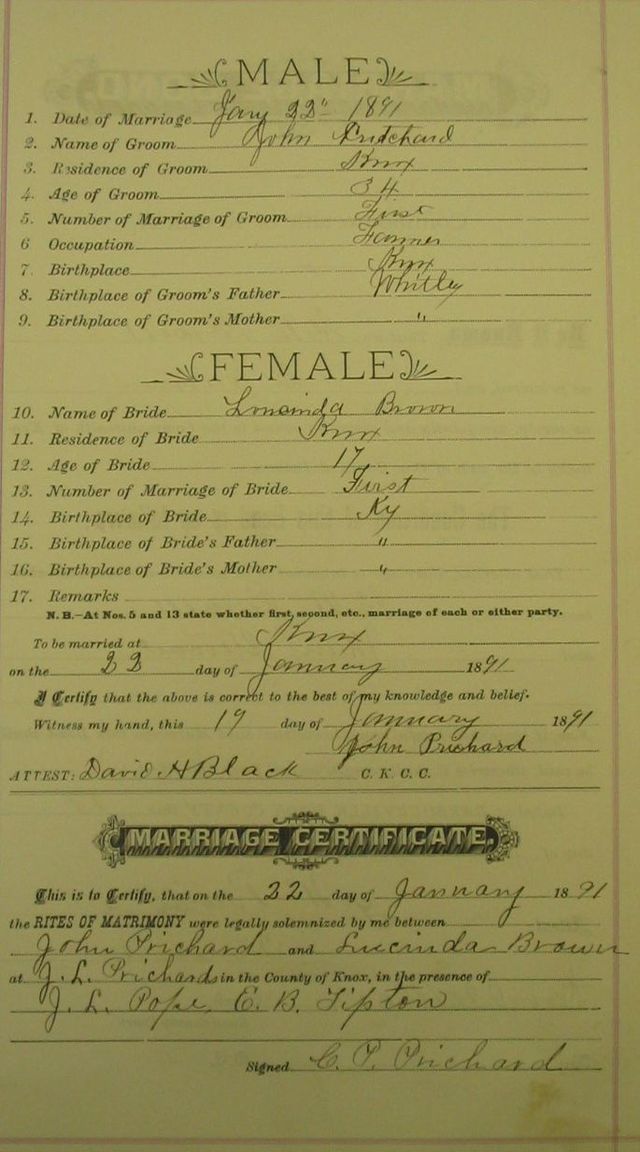 MALE
1. Date of Marriage Jany 22" 1891
2. Name of Groom John Pritchard
3. Residence of Groom Knox
4. Age of Groom 34
5. Number of Marriage of Groom First
6 Occupation Farmer
7. Birthplace Knx
8. Birthplace of Groom's Father Whitley
9. Birthplace of Groom's Mother "
FEMALE
10. Name of Bride Brown
11. Residence of Bride Knx
12. Age of Bride 17
13. Number of Marriage of Bride First
14. Birthplace of Bride Ky
15. Birthplace of Bride's Father "
16. Birthplace of Bride's Mother "
17. Remarks
N. B.—At Nos. 5 and 13 state whether first, second, etc., marriage of each or either party.
To be married at Knx
on the 22 day of January 1891
I Certify that the above is correct to the best of my knowledge and belief.
Witness my hand, this 19 day of January 1891
John Prichard
ATTEST: David H Black C. K. C. C.
MARRIAGE CERTIFICATE
This is to Certify, that on the 22 day of January 1891
the RITES OF MATRIMONY were legally solemnized by me between
John Prichard and Lucinda Brown
at J. L. Prichards in the County of Knox, in the presence of
J. L. Pope E. B. Tipton
Signed C. P. Prichard